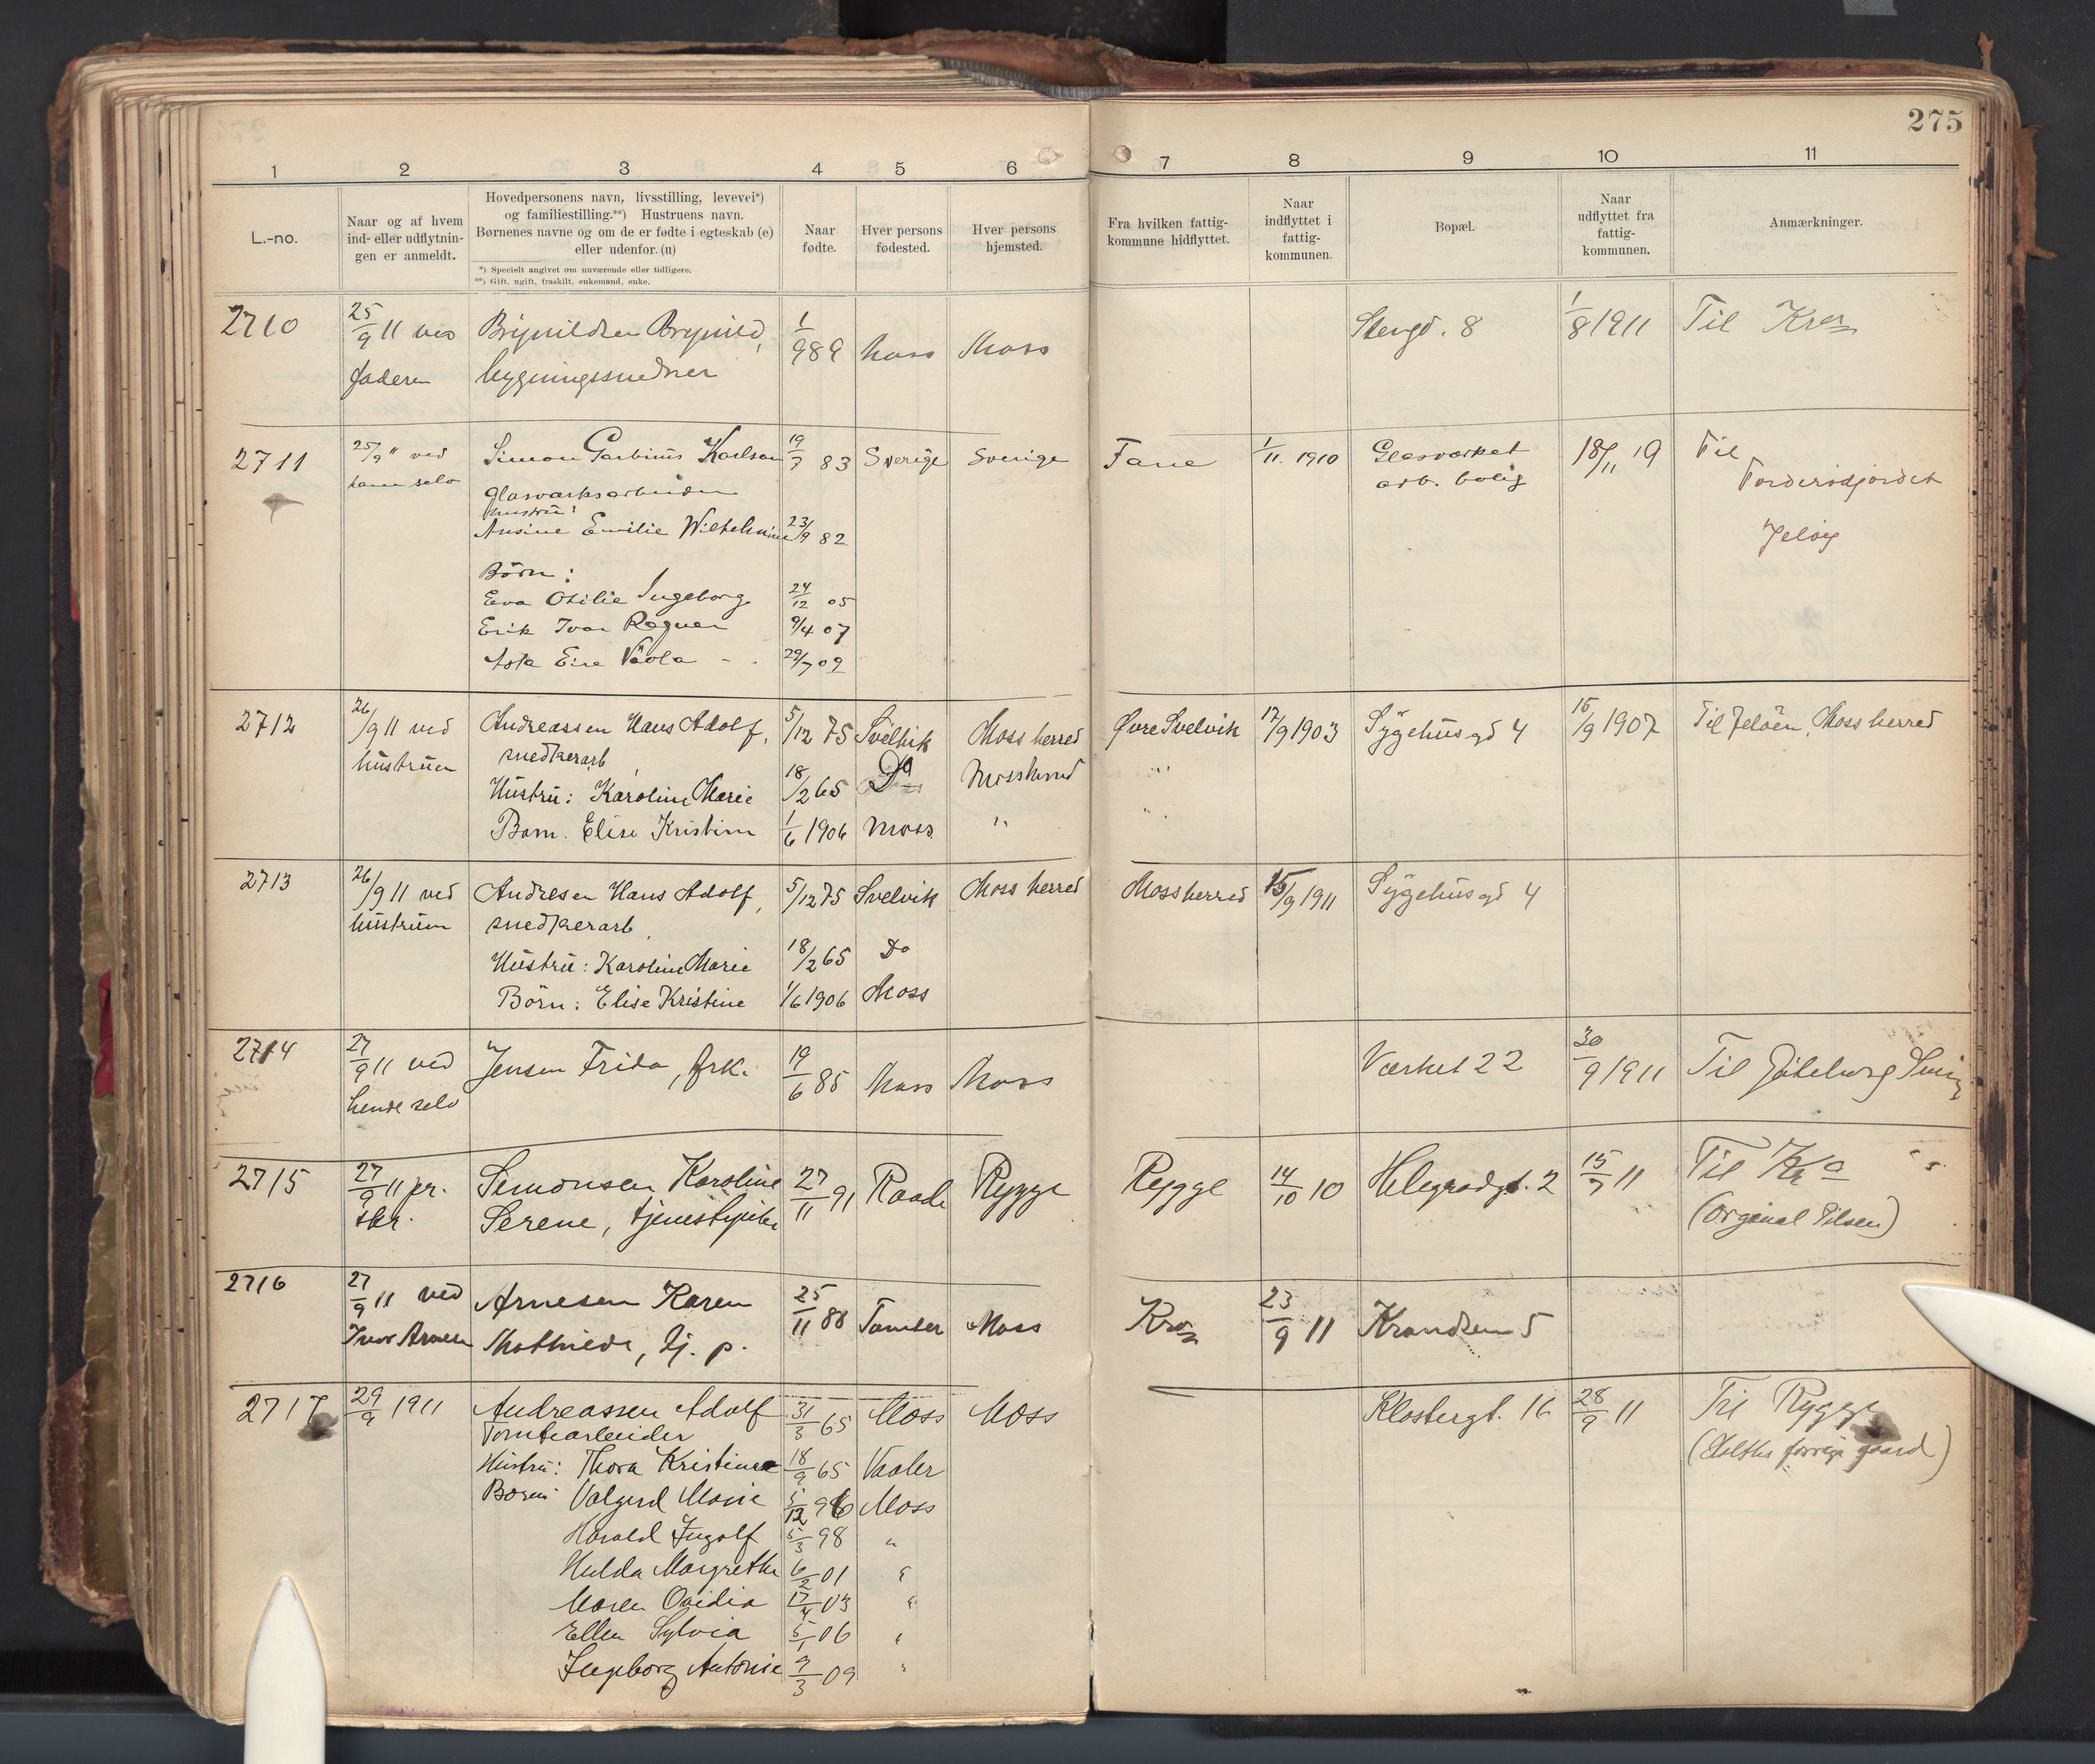 275
1 2 3 4 5 6 7 8 9 10 11
L.-no.
Naar og af hvem
ind- eller udflytnin-
gen er anmeldt.
Hovedpersonens navn, livsstilling, levevei*)
og familiestilling.**) Hustruens navn.
Børnenes navne og om de er fødte i egteskab (e)
eller udenfor. (u)
*) Specielt angivet om nuværende eller tidligere.
**) Gift, ugift, fraskilt, enkemand, enke.
Naar
fødte.
Hver persons
fødested.
Hver persons
hjemsted.
Fra hvilken fattig-
kommune hidflyttet.
Naar
indflyttet i
fattig-
kommunen.
Bopæl.
Naar
udflyttet fra
fattig-
kommunen.
Anmærkninger.
2710 25/9 11 ved Brynildsen Brynild, 1/9 89 Moss Moss Stengd. 8 1/8 1911 Til Kra
faderen bygningssnedker
2711 25/9 " ved Simon Garbinus Karlsen 19/7 83 Sverige Sverige Fane 1/11 1910 Glasværket 18/11 19 Til
ham selv glasværksarbeider arb. bolig
hustru:
Ansine Emilie Wilhelmine 23/9 82 Jeløy
Börn:
Eva Otilie Ingeborg 24/12 05
Erik Ivar Ragnar 9/4 07
29/7 09
2712 26/9 11 ved Andreassen Hans Adolf, 5/12 75 Svelvik Moss herred Øvre Svelvik 17/9 1903 Sygehusgd 4 16/9 1907 Til Jeløen, Moss herred
hustruen snedkerarb
Hustru: Karoline Marie 18/2 65 Do Moss herred "
Barn. Elise Kristine 1/6 1906 Moss " "
2713 26/9 11 ved Andresen Hans Adolf, 5/12 75 Svelvik Moss herred Moss herred 15/9 1911 Sygehusgd 4
hustruen snedkerarb,
Hustru: Karoline Marie 18/2 65 Do
Börn: Elise Kristine 1/6 1906 Moss
2714 27/9 11 ved Jensen Frida, frk. 19/6 85 Moss Moss Værket 22 30/9 1911 Til Göteborg
hende selv
2715 27/9 11 pr. Simonsen Karoline 27/11 91 Raade Rygge Rygge 14/10 10 Helgerødgt. 2 15/7 11 Til Kra
skr. Serene, tjenestepike (Orginal Pilsen)
2716 27/9 11 ved Arnesen Karen 25/11 88 Moss Kra 23/9 11 Krandsen 5
Arnesen Mathilde, tj. p.
2717 29/9 1911 Andreassen Adolf 31/3 65 Moss Moss Klostergt. 16 28/9 11 Til Rygge
Tomtearbeider gaard)
Hustru: Thora Kristine 18/9 65 Vaaler
Børn: Valgerd Marie 5/12 96 Moss
Harald Ingolf 5/3 98 "
Hulda Margrethe 6/2 01 "
Maren Ovidia 17/4 03 "
Ellen Sylvia 5/1 06 "
Ingeborg Antonie 9/3 09 "